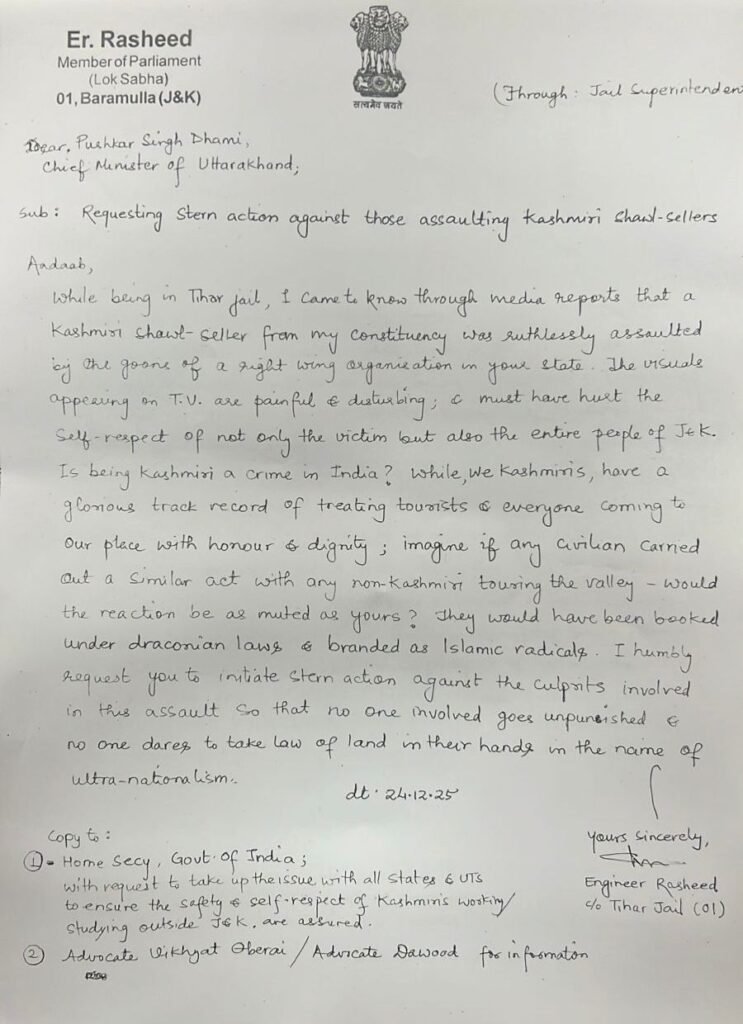 Er. Rasheed
Member of Parliament
(Lok Sabha)
01, Baramulla (J&K)
सत्यमेव जयते
(Through: Jail Superintenden
Dear, Pushkar Singh Dhami,
Chief Minister of Uttarakhand;
Sub: Requesting Stern action against those assaulting Kashmiri Shawl-sellers
Aadaab,
While being in Tihar jail, I came to know through media reports that a
Kashmiri Shawl-seller from my constituency was ruthlessly assaulted
by the goons of a right wing organisation in your state. The visuals
appearing on T.V. are painful & disturbing; & must have hurt the
Self-respect of not only the victim but also the entire people of J&K.
Is being Kashmiri a crime in India? While, we Kashmiris, have a
glorious track record of treating tourists & everyone coming to
Our place with honour & dignity; imagine if any civilian carried
out a similar act with any non-Kashmiri touring the valley – would
the reaction be as muted as yours? They would have been booked
under draconian laws & branded as Islamic radicals. I humbly
request you to initiate stern action against the culprits involved
in this assault so that no one involved goes unpunished &
no one dares to take law of land in their hands in the name of
ultra-nationalism.
dt. 24.12.25
Copy to:
① - Home Secy, Govt. Of India;
with request to take up the issue with all States & UTs
to ensure the safety & self-respect of Kashmiris working/
studying outside J&K, are assured.
② Advocate Vikhyat Oberai / Advocate Dawood for information
Yours Sincerely,
Engineer Rasheed
c/o Tihar Jail (01)